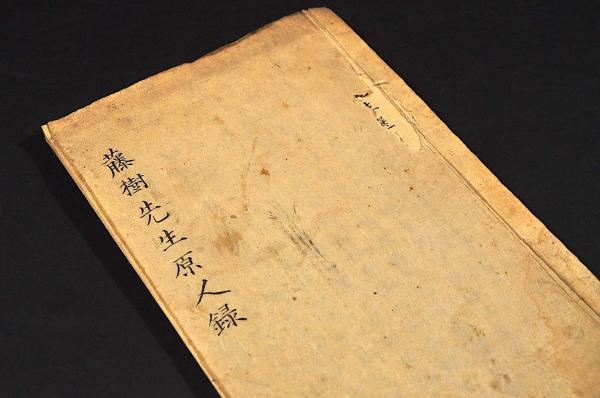 藤樹先生原人録